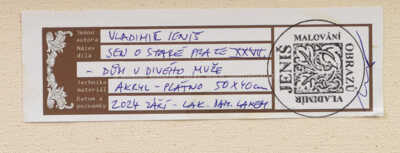 Jméno
autora VLADIMÍR JENIŠ
Název
díla SEN O STARÉ PRAZE XXVII.
- DŮM U DIVÉHO MUŽE
Technika
materiál AKRYL - PLÁTNO 50x40cm
Datum a
poznámky 2024 ZÁŘÍ - LAK. DAM. LAKEM
JENIŠ
MALOVÁNÍ
OBRAZŮ
VLADIMÍR